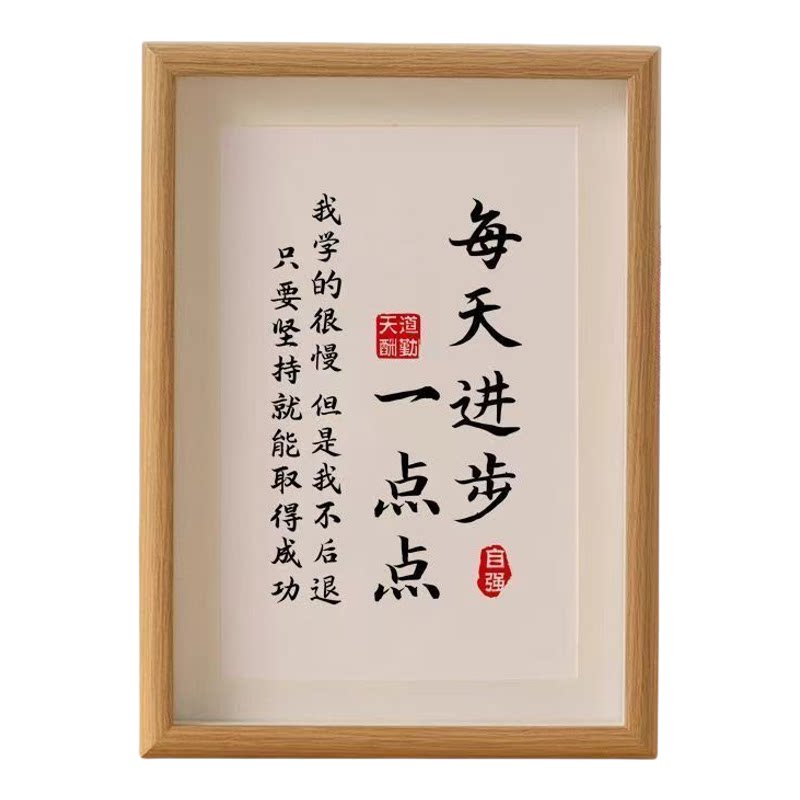 每天进步
自强
道勤
天酬
一点点
我学的很慢 但是我不后退
只要坚持就能取得成功